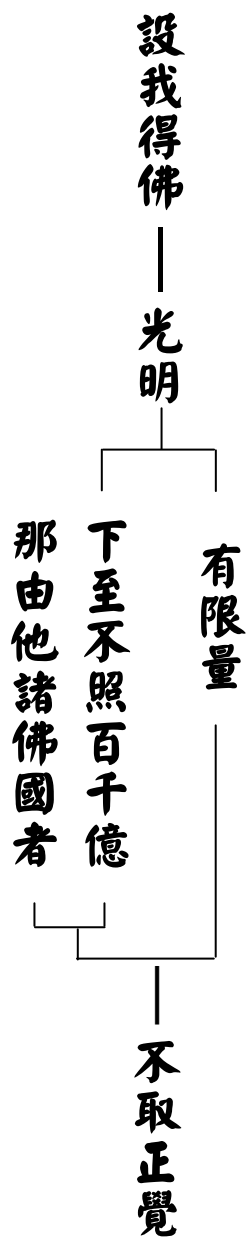 設我得佛
光明
有限量
下至不照百千億
那由他諸佛國者
不取正覺